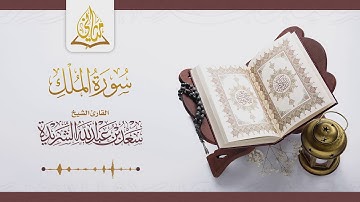 سورة الملك
القارئ الشيخ
سعد بن عبدالله الشريدة